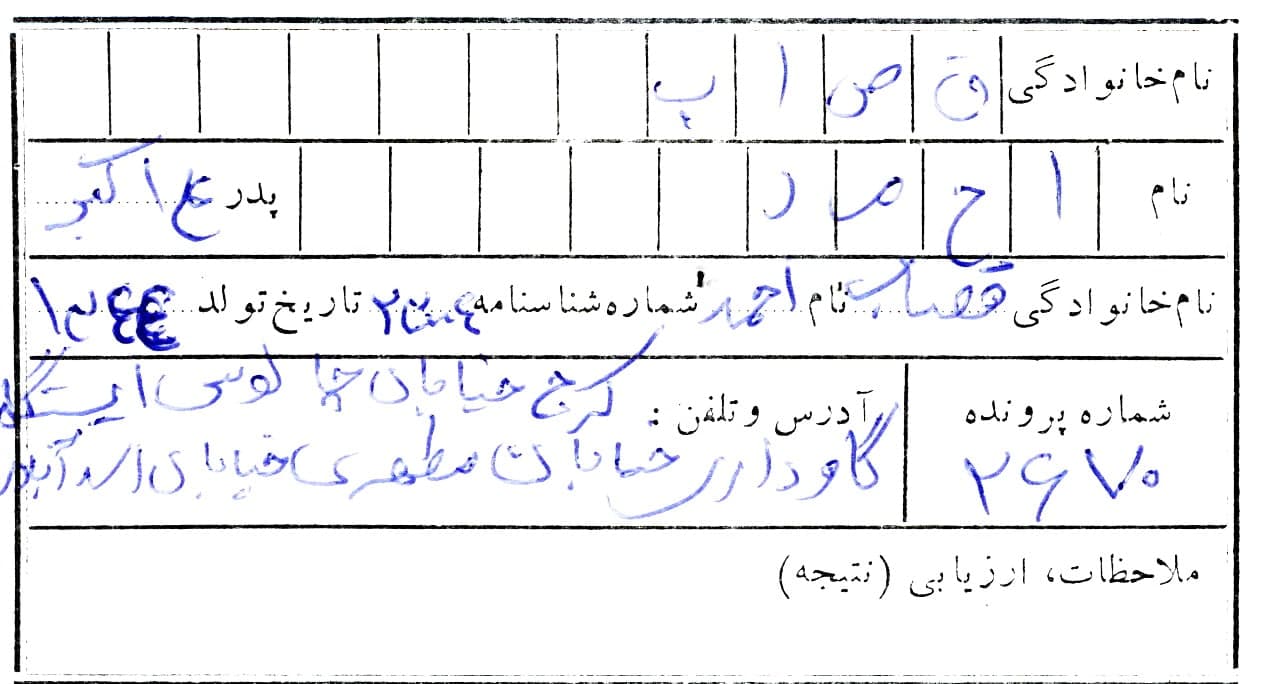 نام خانوادگی ق ص ا ب
نام ا ح م د پدر ع اکبر
نام خانوادگی قصاب نام احمد شماره شناسنامه تاریخ تولد
شماره پرونده آدرس و تلفن : کرج خیابان چالوس ایستگاه
۲۶۷۰ گاوداری خیابان مطهری خیابان
ملاحظات، ارزیابی (نتیجه)